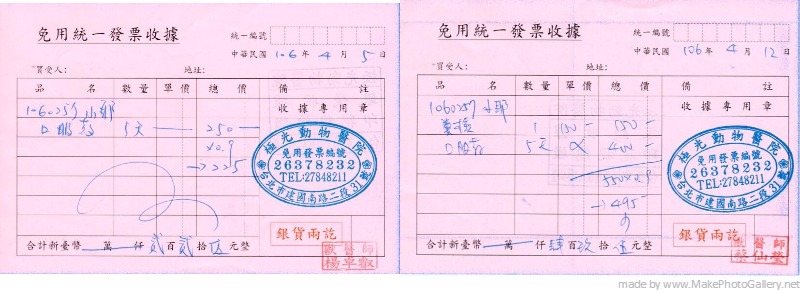 免用統一發票收據
統一編號
中華民國 106 年 4 月 5 日
買受人： 地址：
品 名 數量 單價 總價 備 註
收據專用章
1060257
口服 5天 250
×0.9
→225
極光動物醫院
免用發票編號
26378232
TEL:27848211
台北市建國南路二段31號
銀貨兩訖
合計新臺幣 萬 仟 貳 百 貳 拾 伍 元整
獸醫師
楊卓叡
免用統一發票收據
統一編號
中華民國 106 年 4 月 12 日
買受人： 地址：
品 名 數量 單價 總價 備 註
收據專用章
1060257
1 150 150
口服 5天 400
550×0.9
→495
極光動物醫院
免用發票編號
26378232
TEL:27848211
台北市建國南路二段31號
銀貨兩訖
合計新臺幣 萬 仟 肆 百 玖 拾 伍 元整
獸醫師
made by www.MakePhotoGallery.net